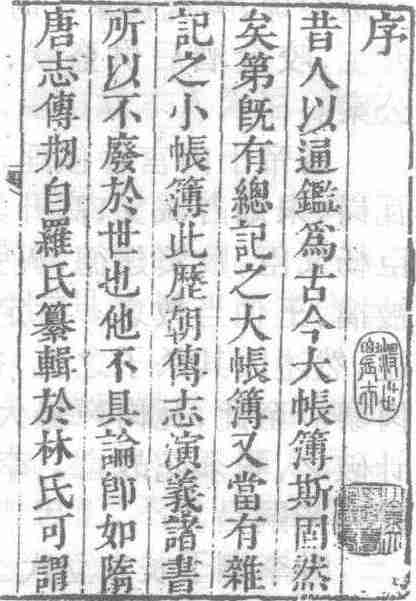 序
昔人以通鑑爲古今大帳簿斯固然
矣第旣有總記之大帳簿又當有雜
記之小帳簿此歷朝傳志演義諸書
所以不廢於世也他不具論卽如隋
唐志傳剏自羅氏纂輯於林氏可謂